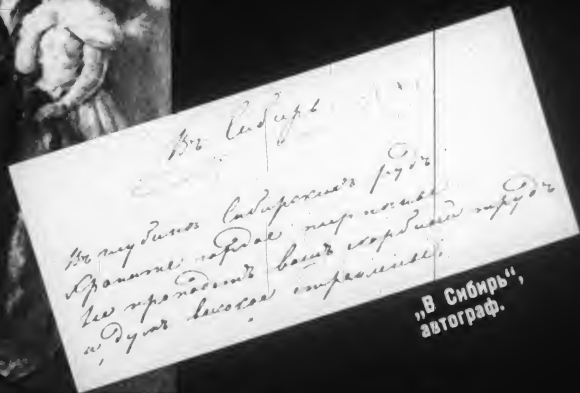 Въ Сибирь
Въ глубинѣ Сибирскихъ рудъ
Храните гордое терпѣнье
Не пропадетъ вашъ скорбный трудъ
и думъ высокое стремленье.
„В Сибирь“,
автограф.